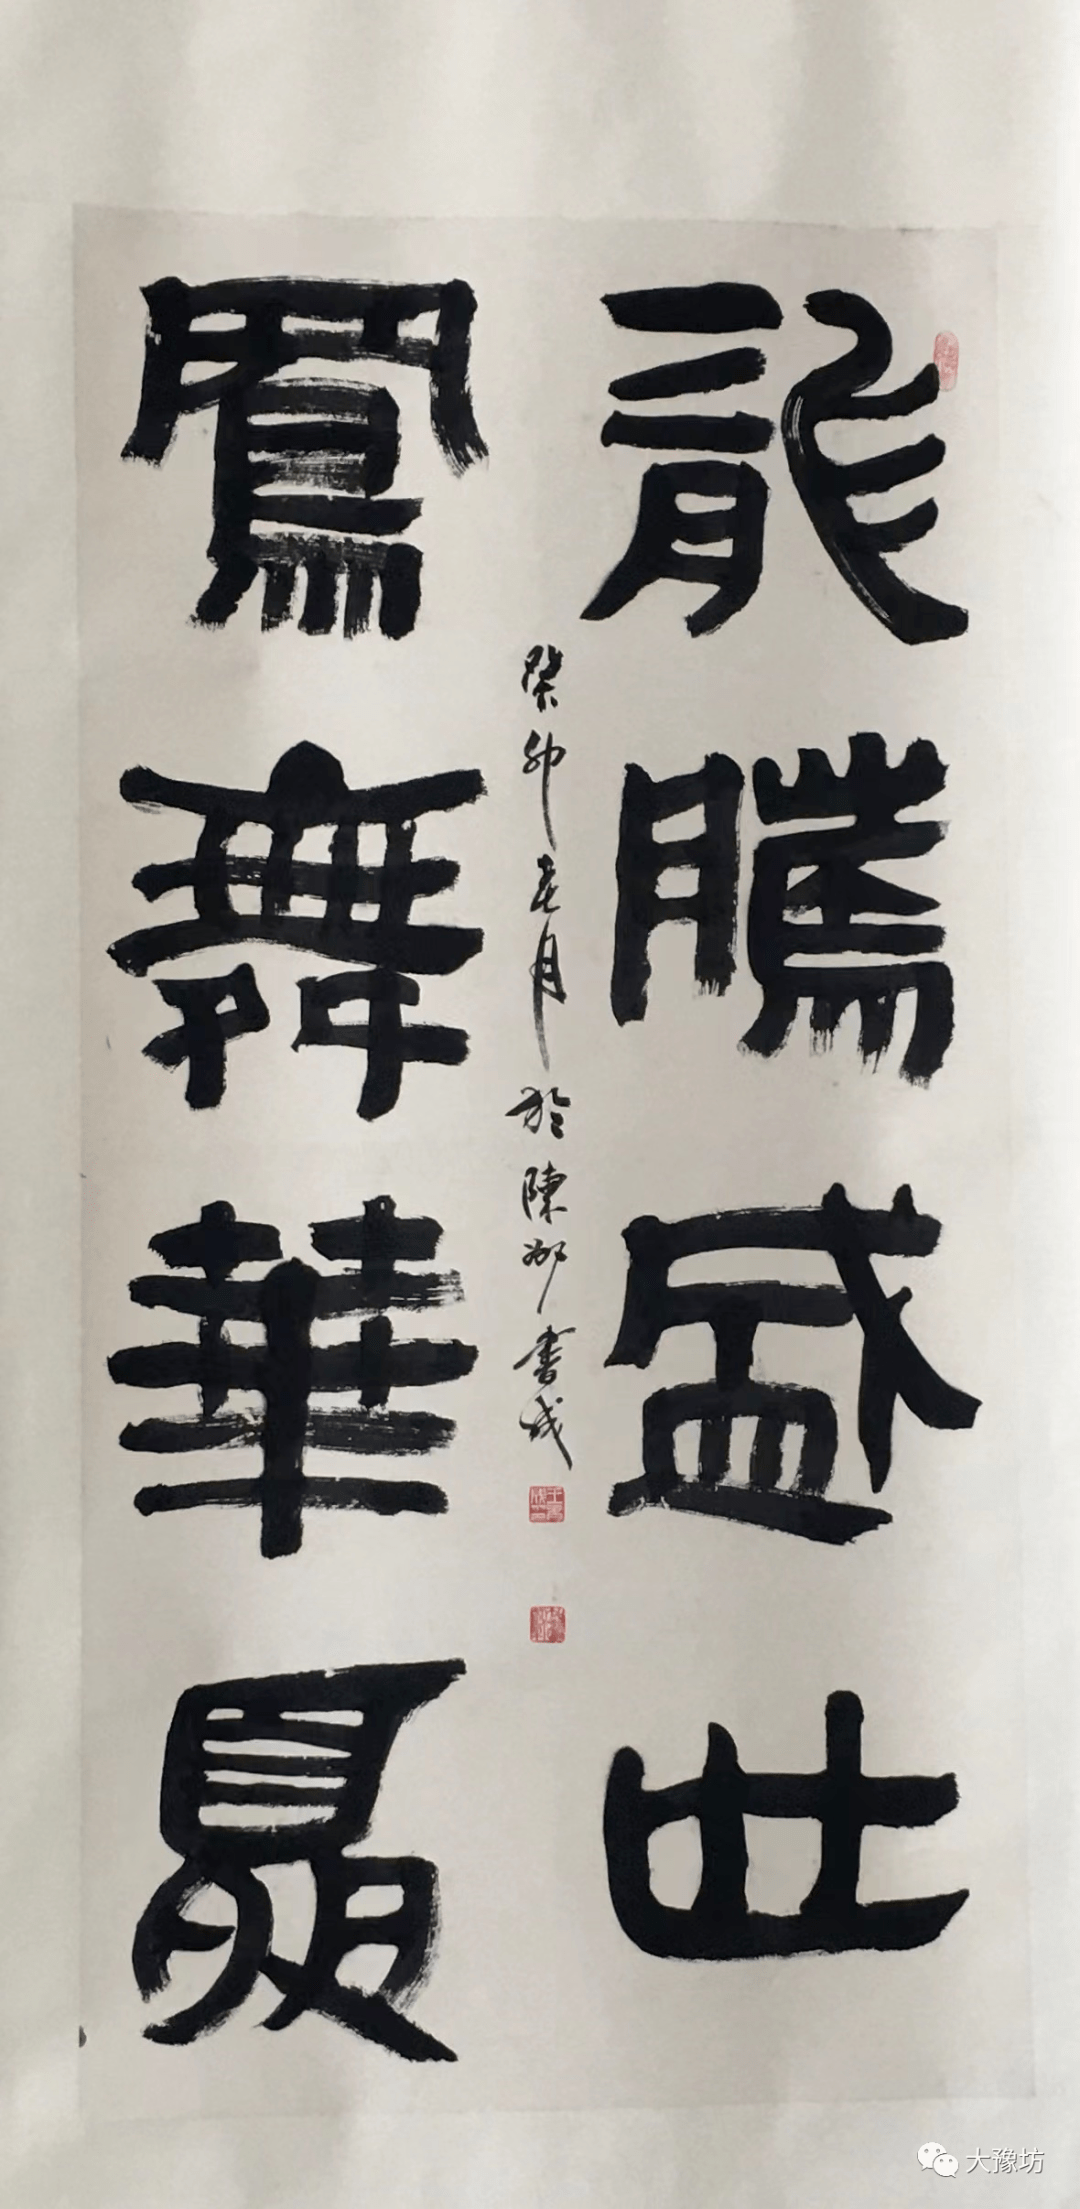 龍騰盛世
鳳舞華夏
癸卯春月於陳州書成
大豫坊